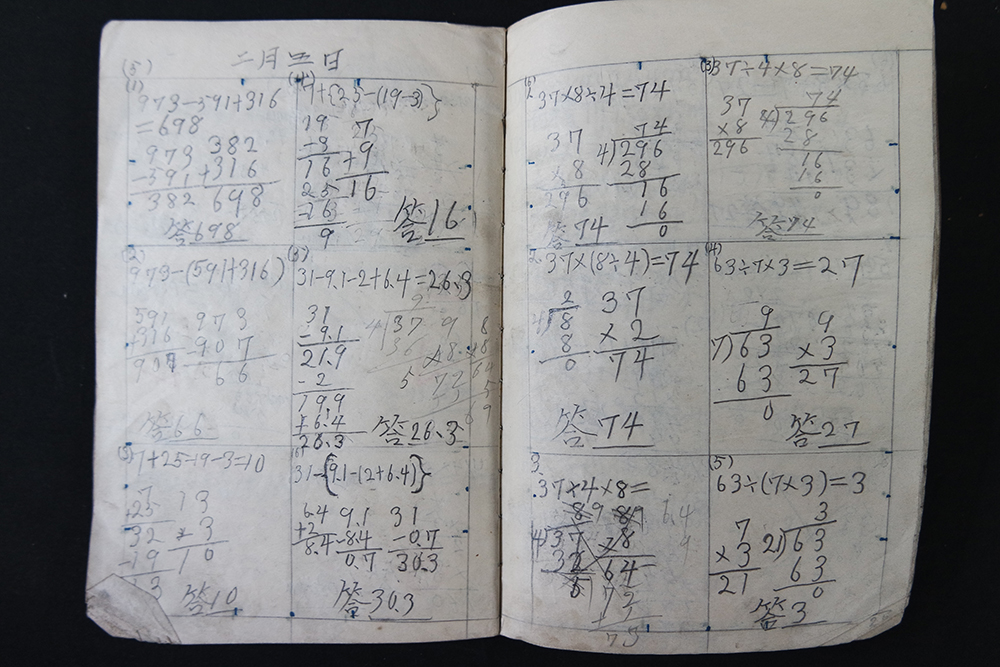 二月三日
(5)
(1)
973-591+316
=698
973 382
-591 +316
382 698
答698
(2)
973-(591+316)
591 973
+316 -907
907 66
答66
(3)
7+25-19-3=10
7
25 13
32 -3
-19 10
13
答10
(4)
7+{25-(19-3)}
19 7
-3 +9
16 16
25
-16
9
答16
(5)
31-9.1-2+6.4=26.3
31
-9.1
21.9
-2
19.9
+6.4
26.3
答26.3
(6)
31-{9.1-(2+6.4)}
6.4 9.1 31
+2 -8.4 -0.7
8.4 0.7 30.3
答30.3
37×8÷4=74
37 74
×8 4)296
296 28
16
16
0
答74
2.
37×(8÷4)=74
2 37
4)8 ×2
8 74
0
答74
3.
37×4×8=
(3)
37÷4×8=74
37 74
×8 4)296
296 28
16
16
0
答74
(4)
63÷7×3=27
9 9
7)63 ×3
63 27
0
答27
(5)
63÷(7×3)=3
7 3
×3 21)63
21 63
0
答3